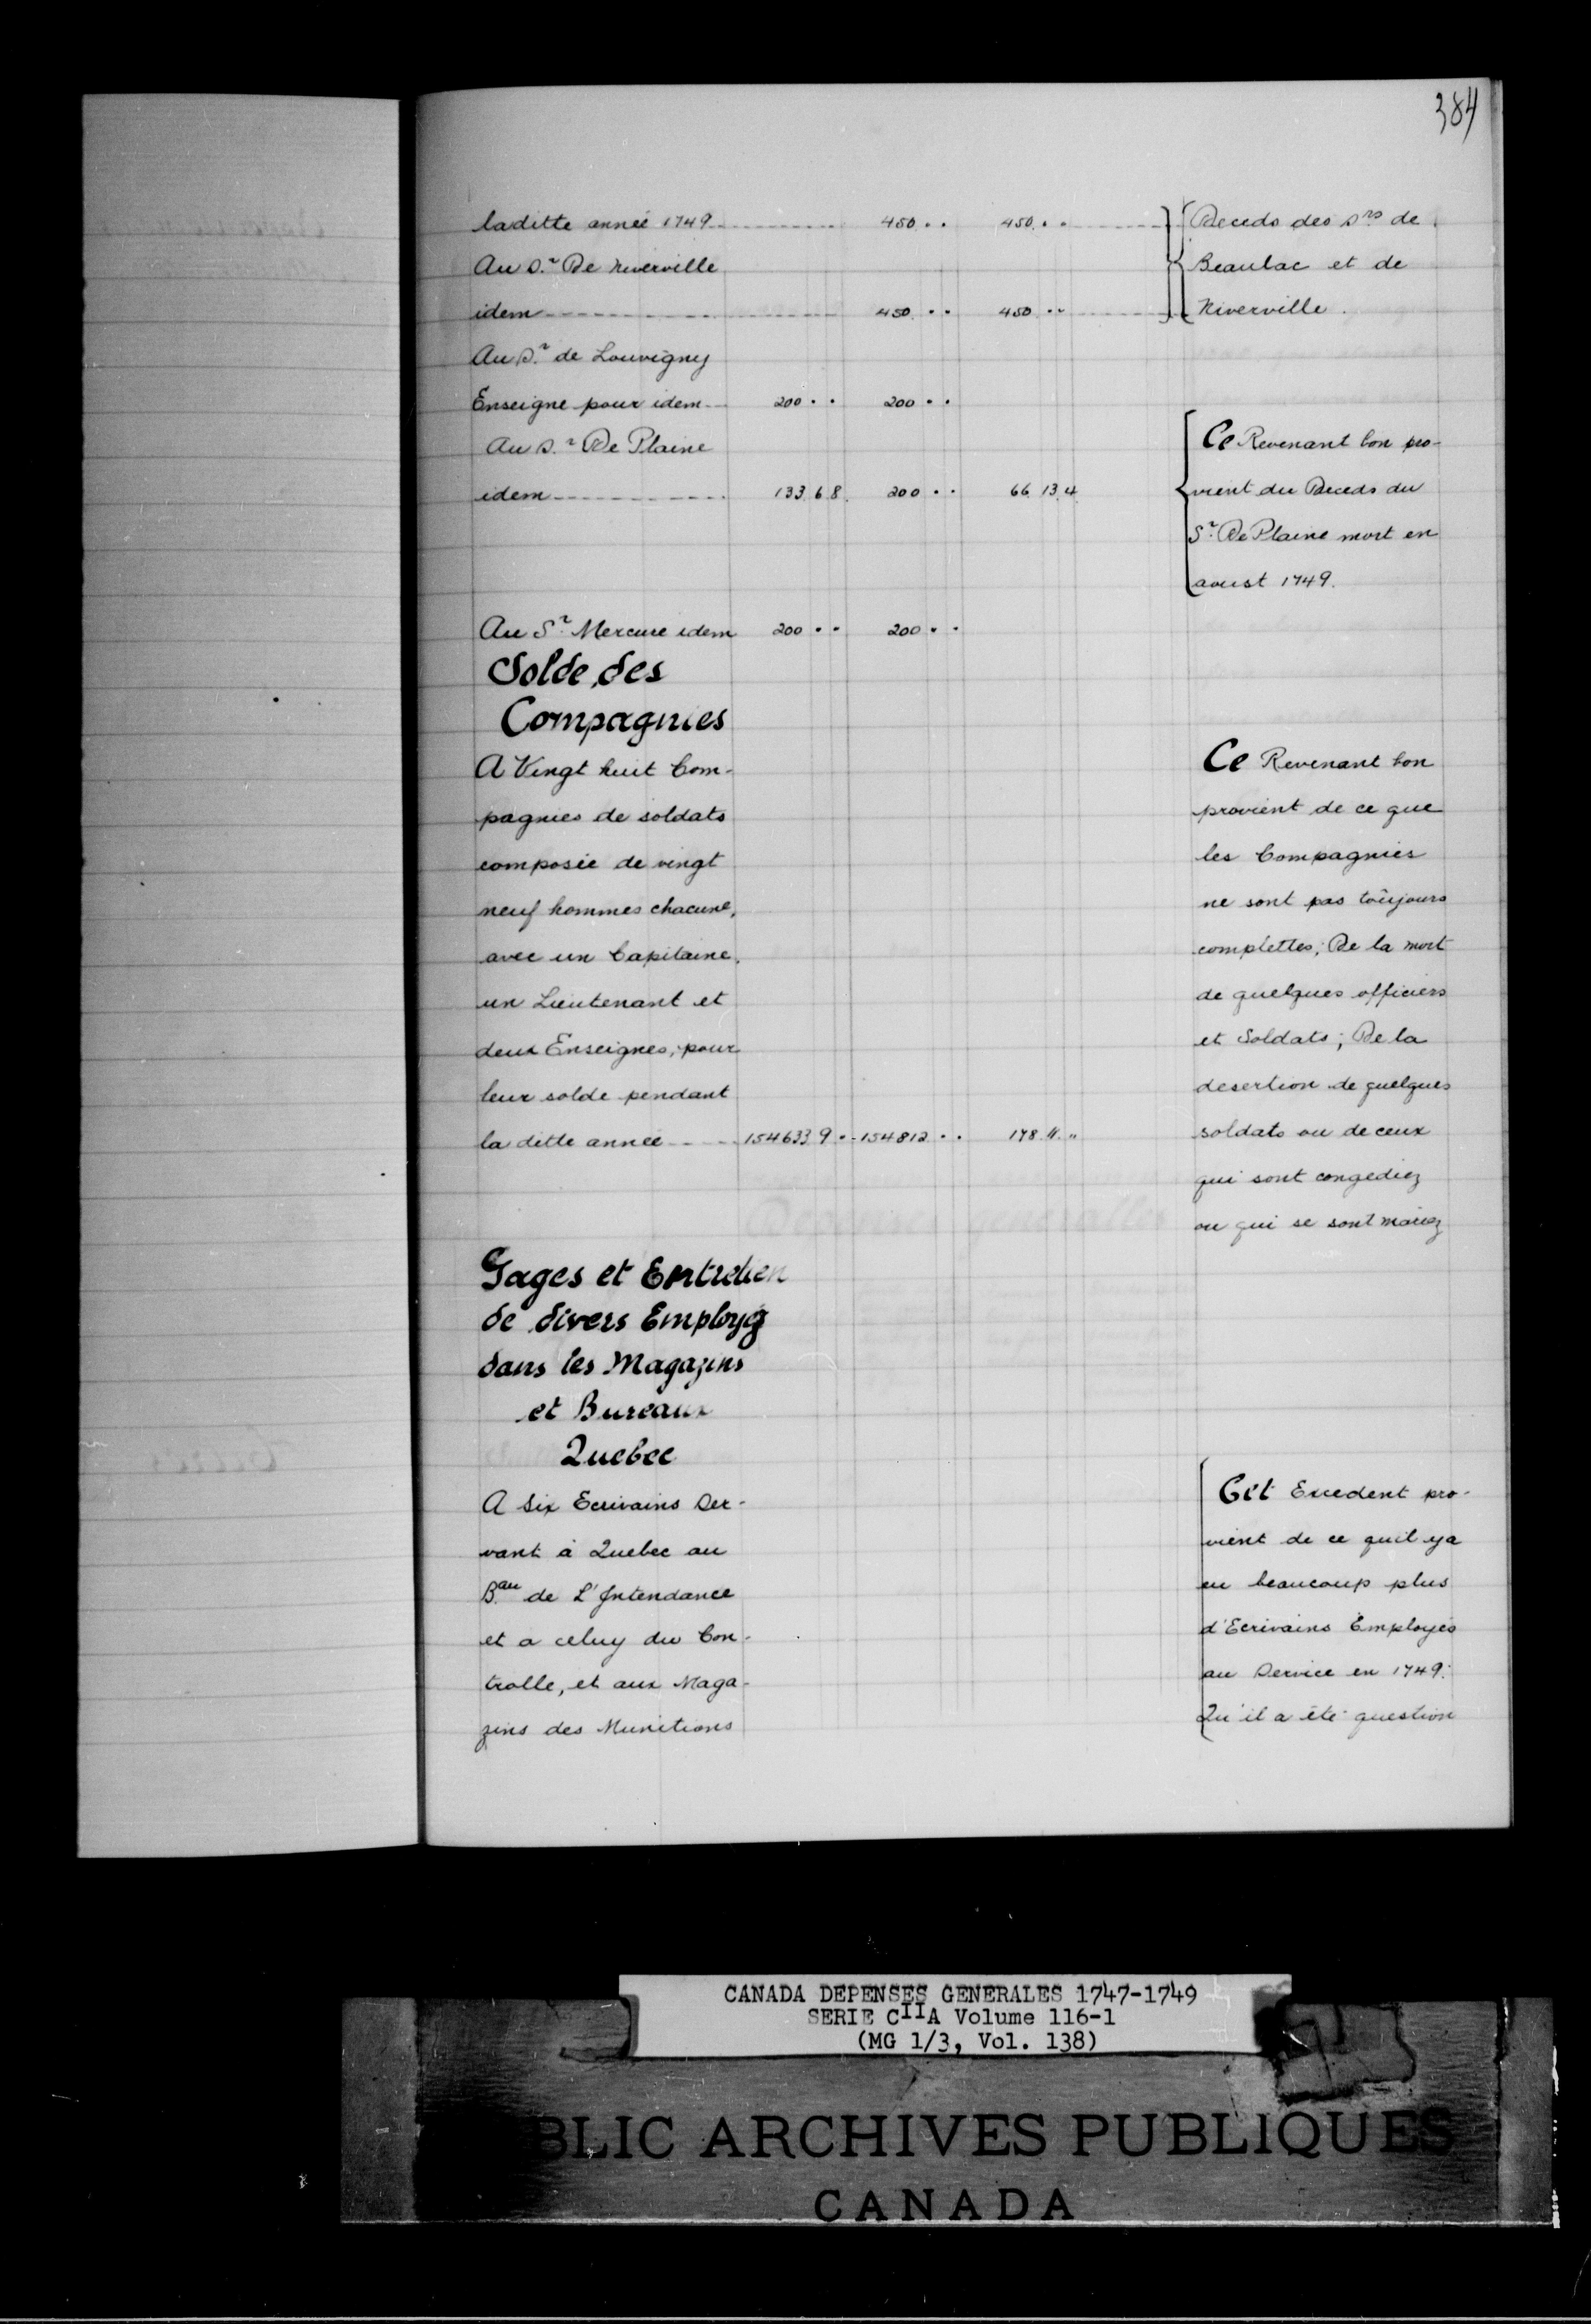 384
laditte année 1749 450 . . 450 . . Deceds des Srs de
Au Sr De Niverville Beaulac et de
idem 450 . . 450 . . Niverville.
Au Sr de Louvigny
Enseigne pour idem 200 . . 200 . .
Au Sr De Plaine Ce Revenant bon pro-
idem 133 6 8 200 . . 66 13 4 vient du Deceds du
Sr De Plaine mort en
aoust 1749.
Au Sr Mercure idem 200 . . 200 . .
Solde des
Compagnies
A Vingt huit Com- Ce Revenant bon
pagnies de soldats provient de ce que
composée de vingt les Compagnies
neuf hommes chacune, ne sont pas toûjours
avec un Capitaine, complettes; De la mort
un Lieutenant et de quelques officiers
deux Enseignes, pour et Soldats; De la
leur solde pendant desertion de quelques
la ditte année 154633 9 . 154812 . . 178 11 " soldats ou de ceux
qui sont congediez
ou qui se sont mariez
Gages et Entretien
de divers Employez
dans les Magazins
et Bureaux
Quebec
A Six Ecrivains Ser- Cet Excedent pro-
vant à Quebec au vient de ce quil ya
Bau de L'Intendance eu beaucoup plus
et a celuy du Con- d'Ecrivains Employés
trolle, et aux Maga- au Service en 1749.
zins des Munitions Qu'il a été question
CANADA DEPENSES GENERALES 1747-1749
SERIE CIIA Volume 116-1
(MG 1/3, Vol. 138)
BLIC ARCHIVES PUBLIQUES
CANADA